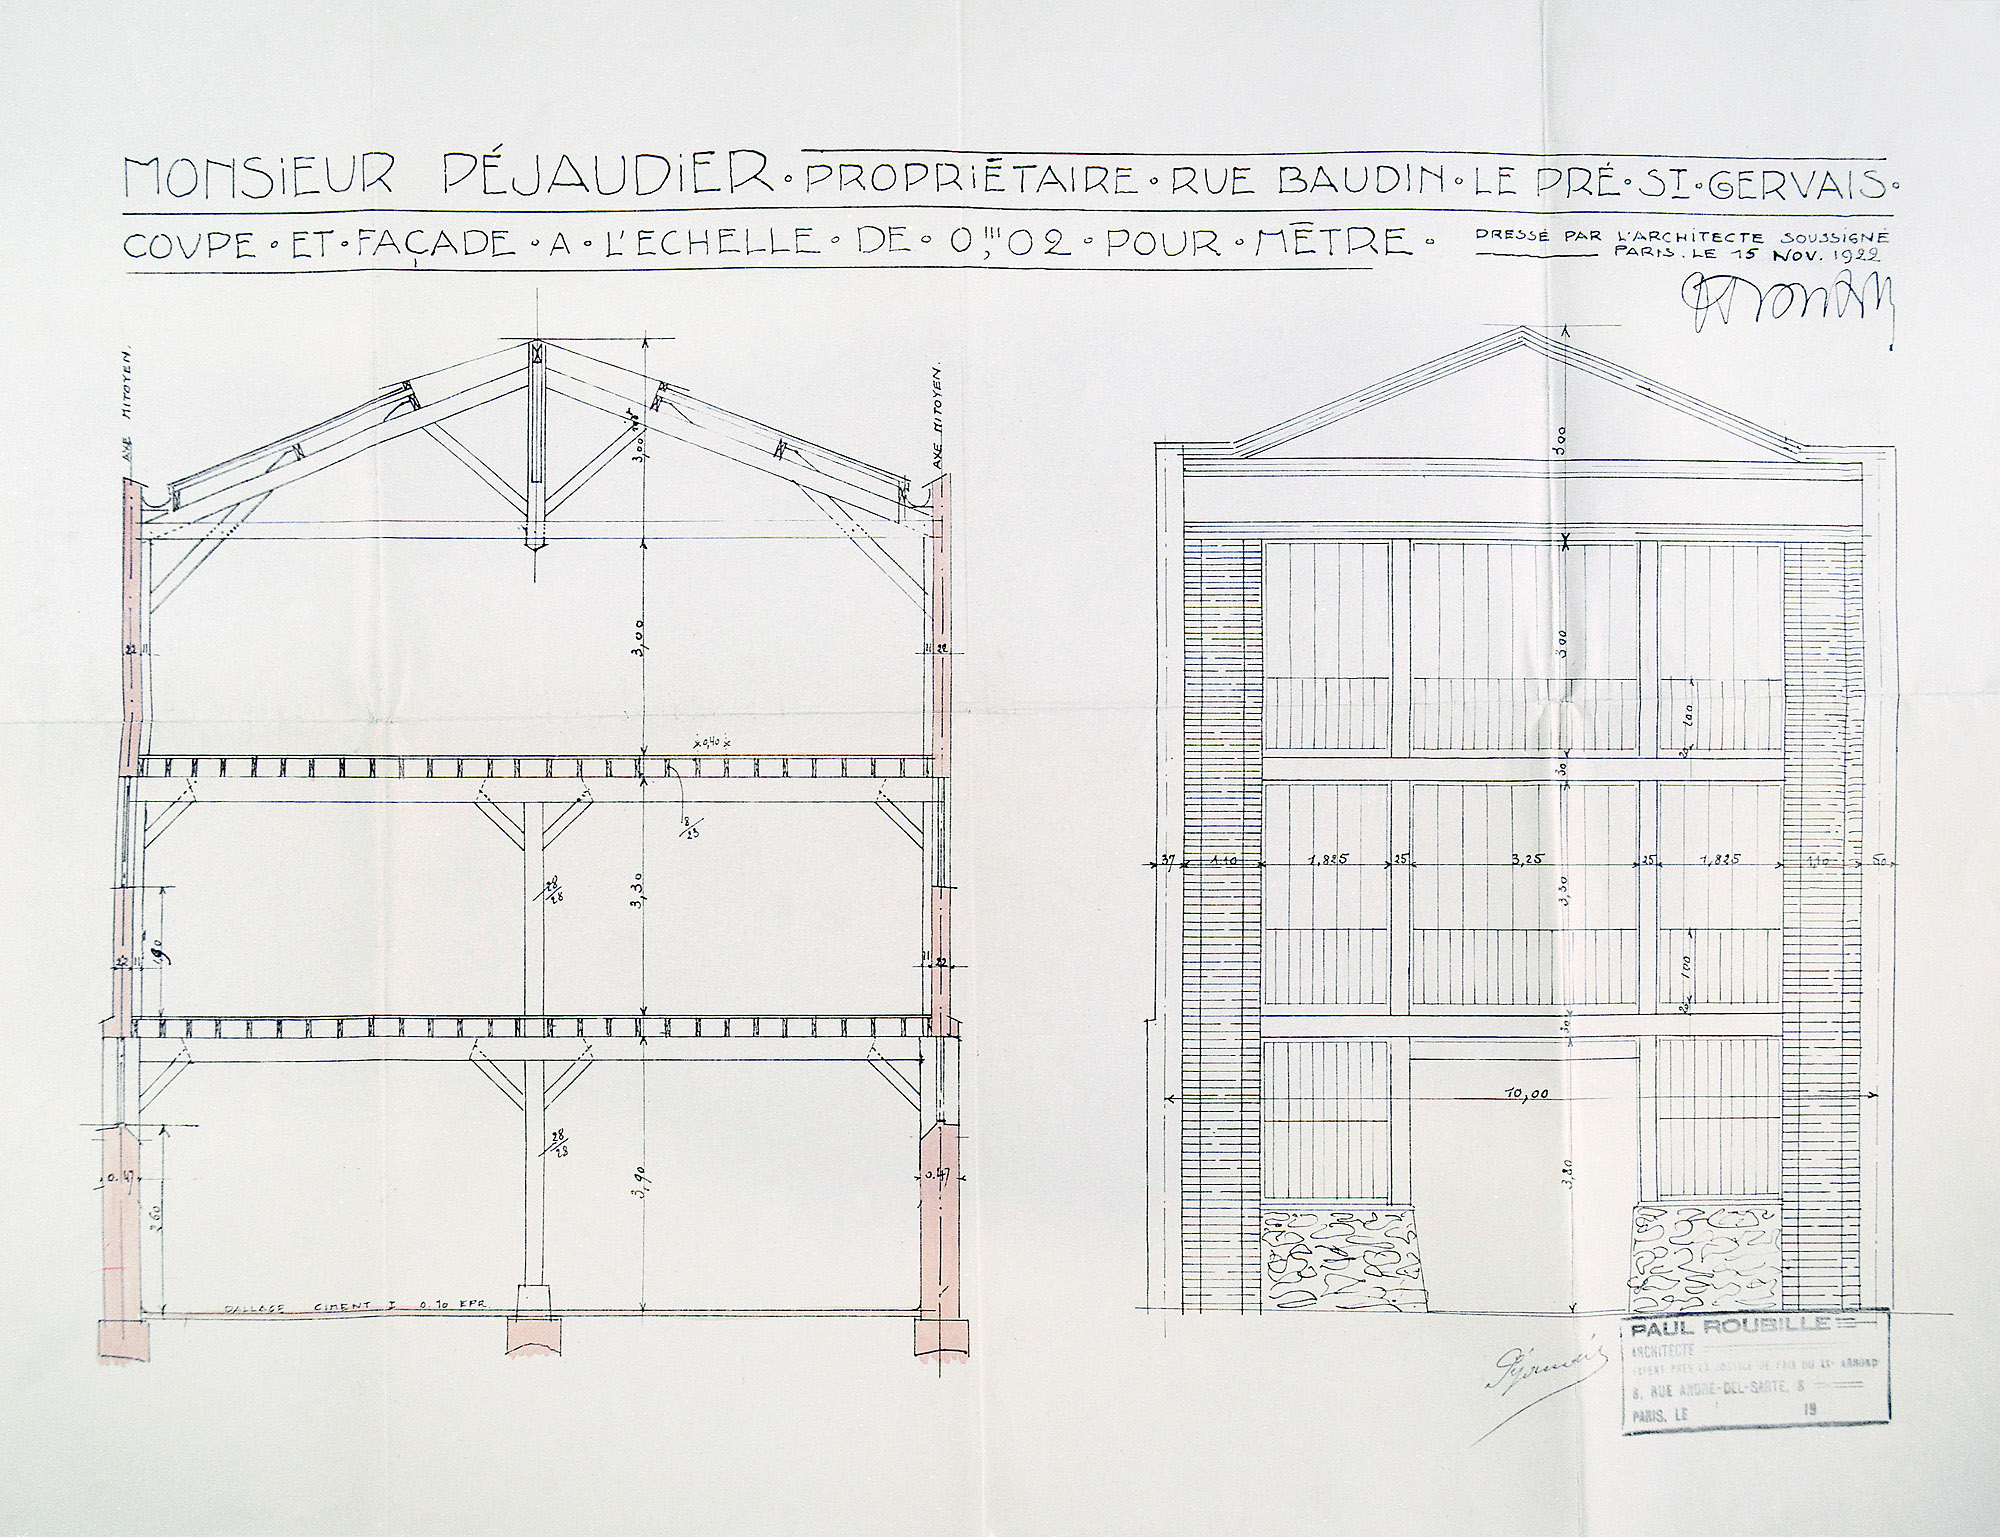 MONSIEUR PÉJAUDIER · PROPRIÉTAIRE · RUE BAUDIN · LE PRÉ · ST · GERVAIS ·
COUPE · ET · FAÇADE · A · L'ECHELLE · DE · 0,m02 · POUR · MÈTRE ·
DRESSÉ PAR L'ARCHITECTE SOUSSIGNÉ
PARIS . LE 15 NOV. 1922
AXE MITOYEN.
AXE MITOYEN.
3,00
3,00
22 11
11 22
0,40
8/23
3,30
28/28
22 11
11 22
28/28
3,90
0.47
0.47
DALLAGE CIMENT 0.10 EPR.
3,00
3,00
1,00
20
30
37 1.10 1,825 25 3,25 25 1,825 1,10 50
3,30
1,00
20
30
10,00
PAUL ROUBILLE
ARCHITECTE
EXPERT PRÈS LA JUSTICE DE PAIX DU XXe ARROND
8, RUE ANDRÉ-DEL-SARTE, 8
PARIS, LE 19